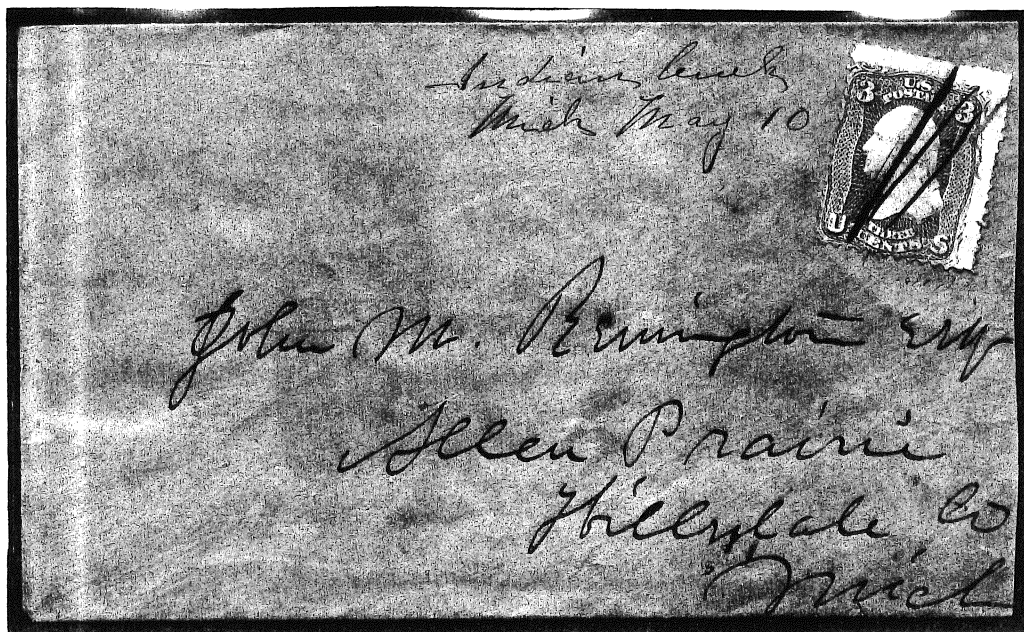 Indian Creek
Mich May 10
3 U.S. 3
POSTAGE
U THREE S
CENTS
John M. Remington Esq
Allen Prairie
Hillsdale Co
Mich